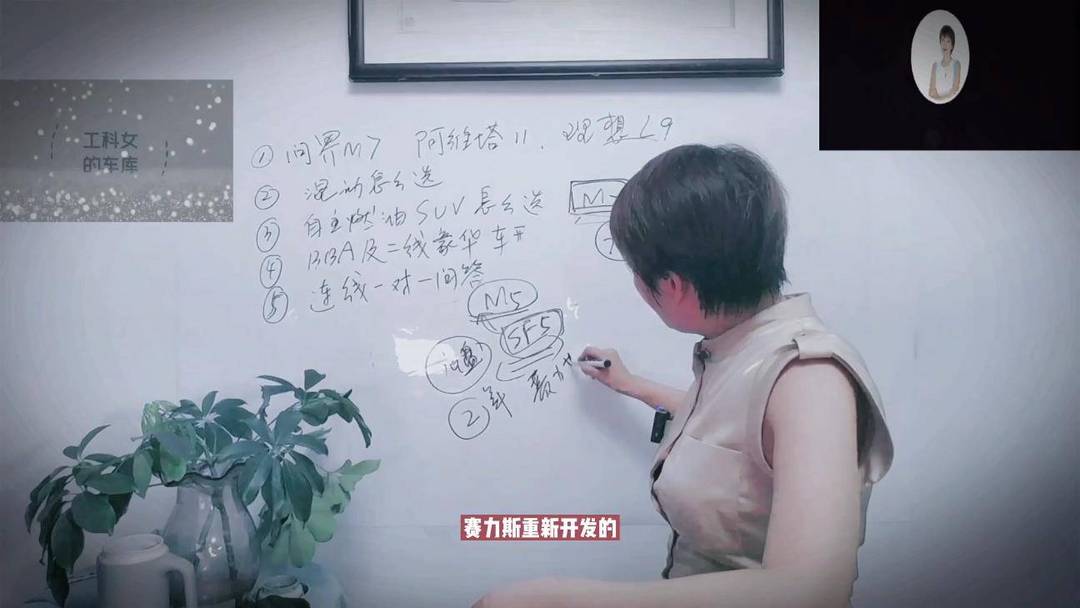 工科女
的车库
① 问界M7 阿维塔11、理想L9
② 混动怎么选
③ 自主燃油SUV怎么选
④ BBA及二线豪华车
⑤ 连线一对一问答
M5
SF5
②
赛力斯重新开发的